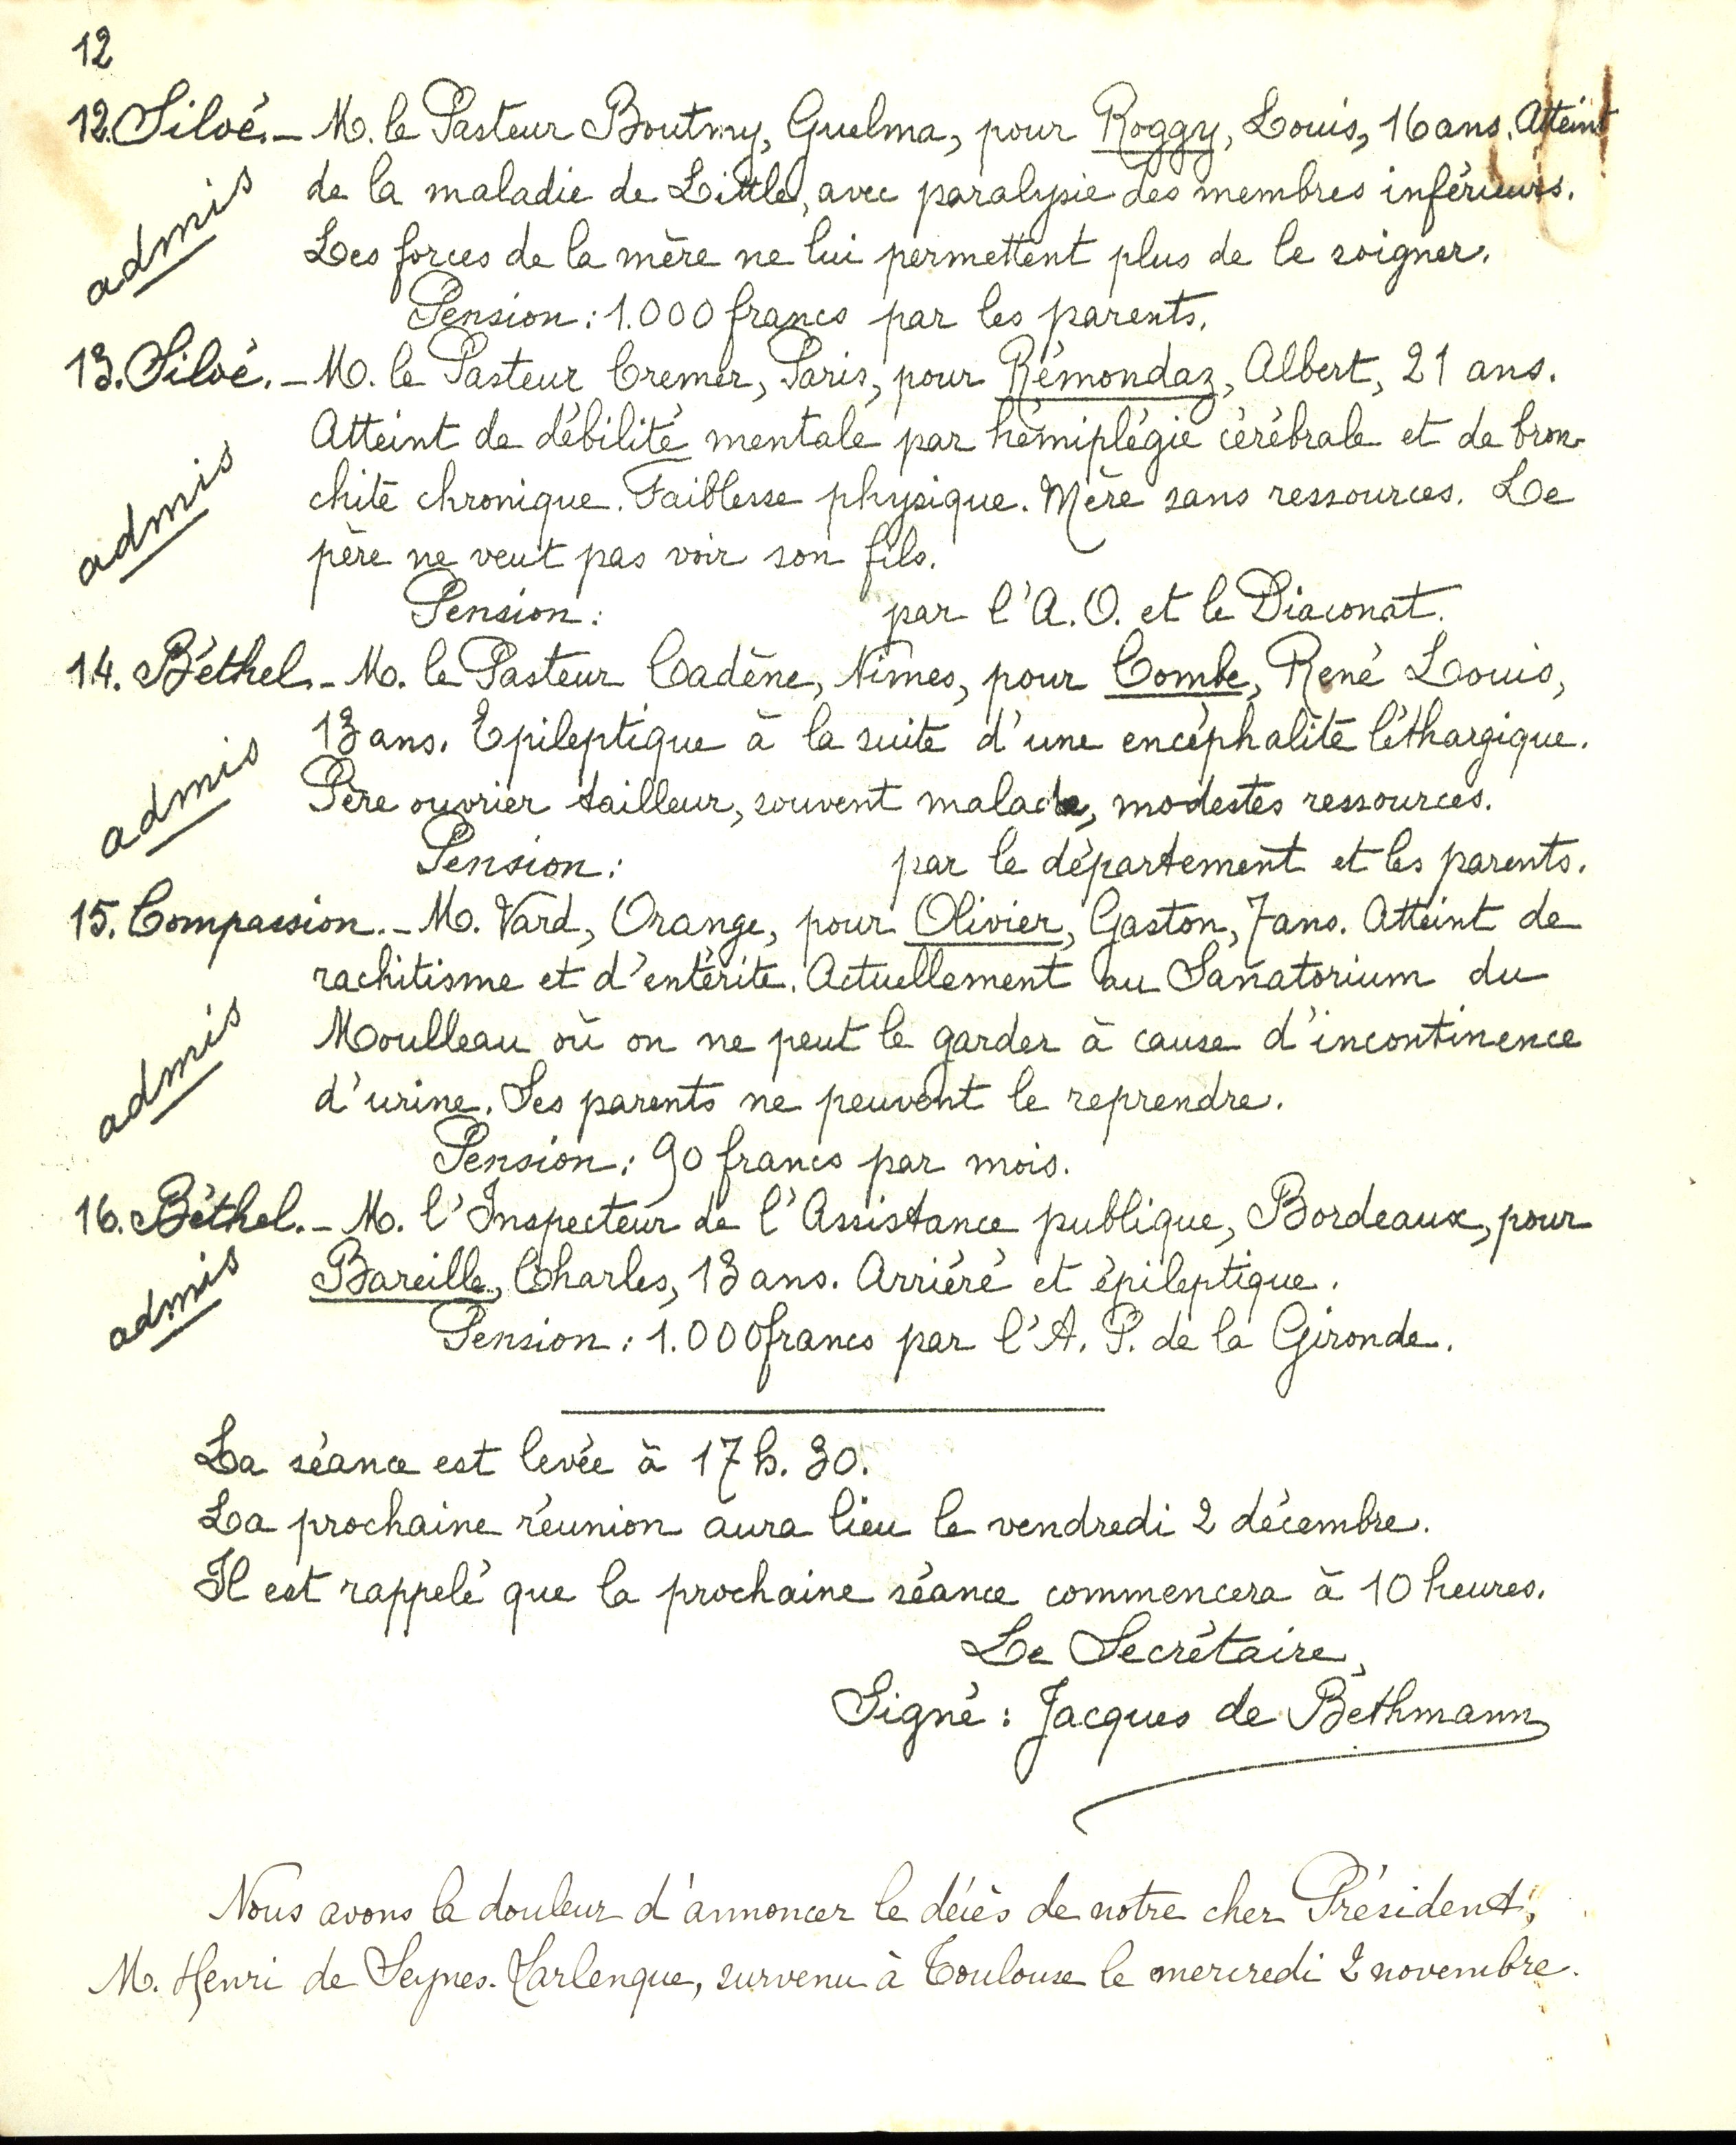 12
12. Siloé. – M. le Pasteur Boutmy, Guelma, pour Roggy, Louis, 16 ans. Atteint
de la maladie de Little, avec paralysie des membres inférieurs.
admis
Les forces de la mère ne lui permettent plus de le soigner.
Pension : 1.000 francs par les parents.
13. Siloé. – M. le Pasteur Cremer, Paris, pour Rémondaz, Albert, 21 ans.
Atteint de débilité mentale par hémiplégie cérébrale et de bron-
admis
chite chronique. Faiblesse physique. Mère sans ressources. Le
père ne veut pas voir son fils.
Pension : par l'A.O. et le Diaconat.
14. Béthel. – M. le Pasteur Cadène, Nîmes, pour Combe, René Louis,
13 ans. Epileptique à la suite d'une encéphalite léthargique.
admis
Père ouvrier tailleur, souvent malade, modestes ressources.
Pension : par le département et les parents.
15. Compassion. – M. Vard, Orange, pour Olivier, Gaston, 7 ans. Atteint de
rachitisme et d'entérite. Actuellement au Sanatorium du
admis
Moulleau où on ne peut le garder à cause d'incontinence
d'urine. Ses parents ne peuvent le reprendre.
Pension : 90 francs par mois.
16. Béthel. – M. l'Inspecteur de l'Assistance publique, Bordeaux, pour
admis
Bareille, Charles, 13 ans. Arriéré et épileptique.
Pension : 1.000 francs par l'A. P. de la Gironde.
La séance est levée à 17 h. 30.
La prochaine réunion aura lieu le vendredi 2 décembre.
Il est rappelé que la prochaine séance commencera à 10 heures.
Le Secrétaire,
Signé : Jacques de Bethmann
Nous avons la douleur d'annoncer le décès de notre cher Président,
M. Henri de Seynes-Larlenque, survenu à Toulouse le mercredi 2 novembre.